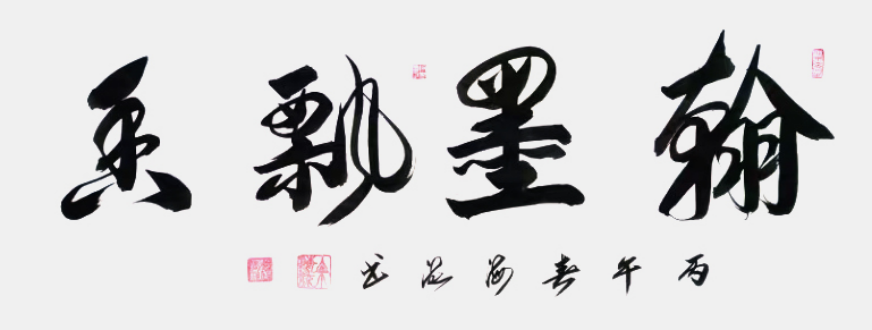 翰墨飘香
丙午春海书